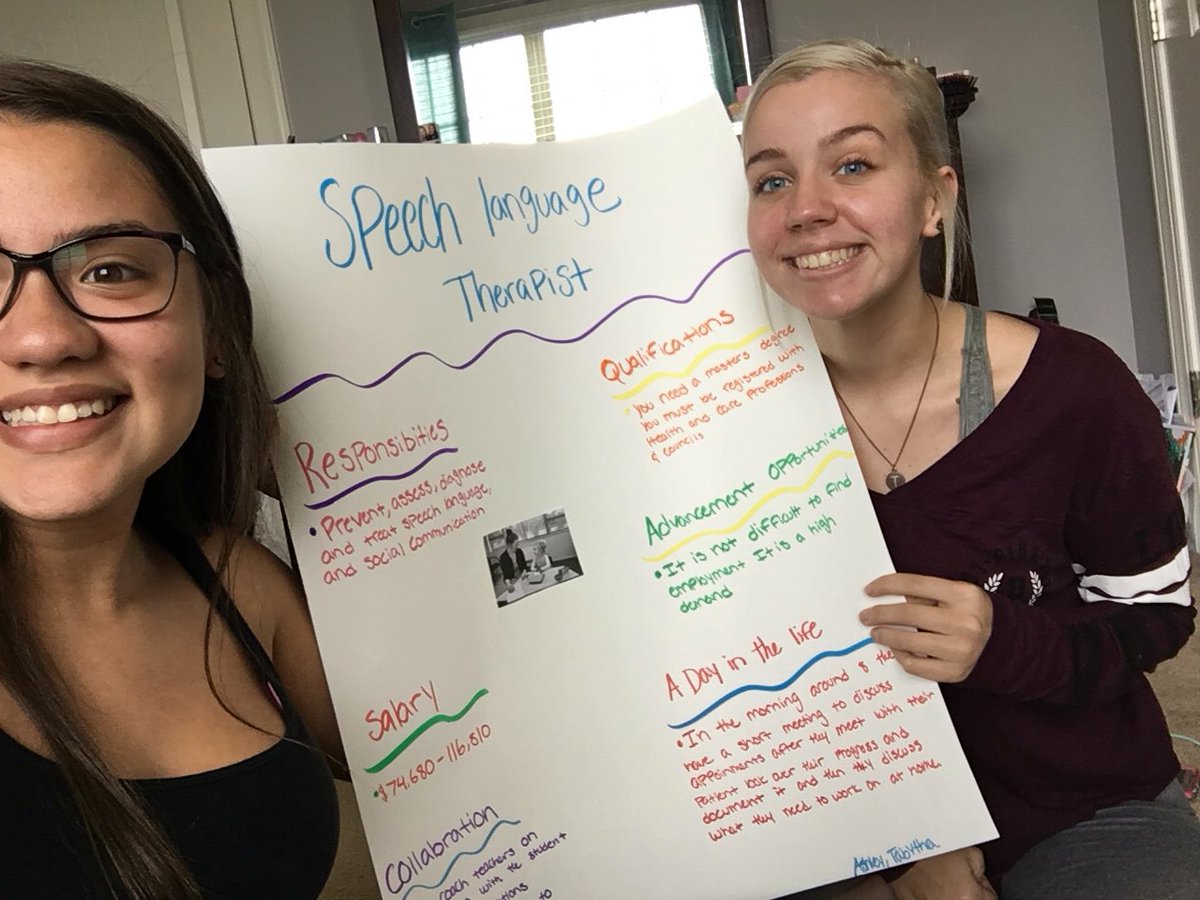 Speech language
Therapist
Responsibities
• Prevent, assess, diagnose
and treat speech language,
and social communication
Salary
• $74,680-116,810
Collaboration
coach teachers on
with the student
to
Qualifications
• You need a masters degree
You must be registered with
Health and care Professions
& councils
Advancement Opportunities
• It is not difficult to find
employment It is a high
demand
A Day in the life
• In the morning around 8 they
have a short meeting to discuss
appoinments after thy meet with their
Patient look over their progress and
document it and then thy discuss
what thy need to work on at home
Tabytha
T